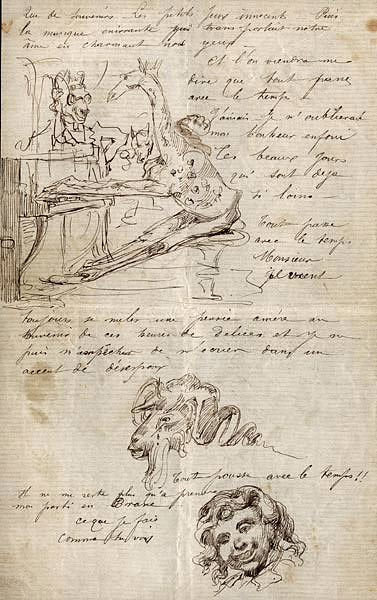 Que de souvenirs Les petits jeux innocents Puis
la musique enivrante qui transportait notre
âme en charmant nos yeux
Et l'on viendra me
dire que tout passe
avec le temps
Jamais je n'oublierai
mon bonheur enfoui
Ces beaux jours
qui sont déjà
si loins
Tout passe
avec le temps
Monsieur
Vincent
Toujours se mêler une pensée amère au
souvenir de ces heures de délices et je ne
puis m'empêcher de m'écrier dans un
accent de désespoir
Tout pousse avec le temps!!
Il ne me reste plus qu'à prendre
mon parti en Brave
ce que je fais
comme tu vois